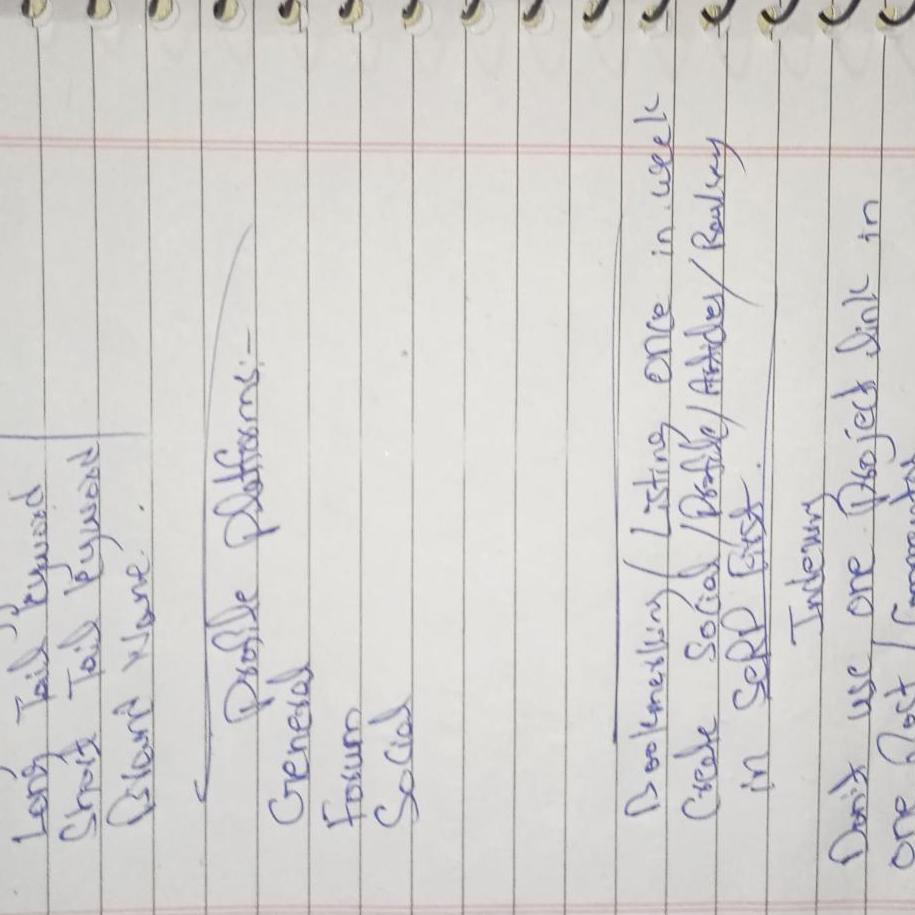 Long Tail Keyword
Short Tail Keyword
Brand Name.
Profile Platforms:-
General
Forum
Social
Bookmarking / Listing once in week
Create Social / Profile / Articles / Ranking
in SERP First.
Indexing
Don't use one Project Link in
one Post /